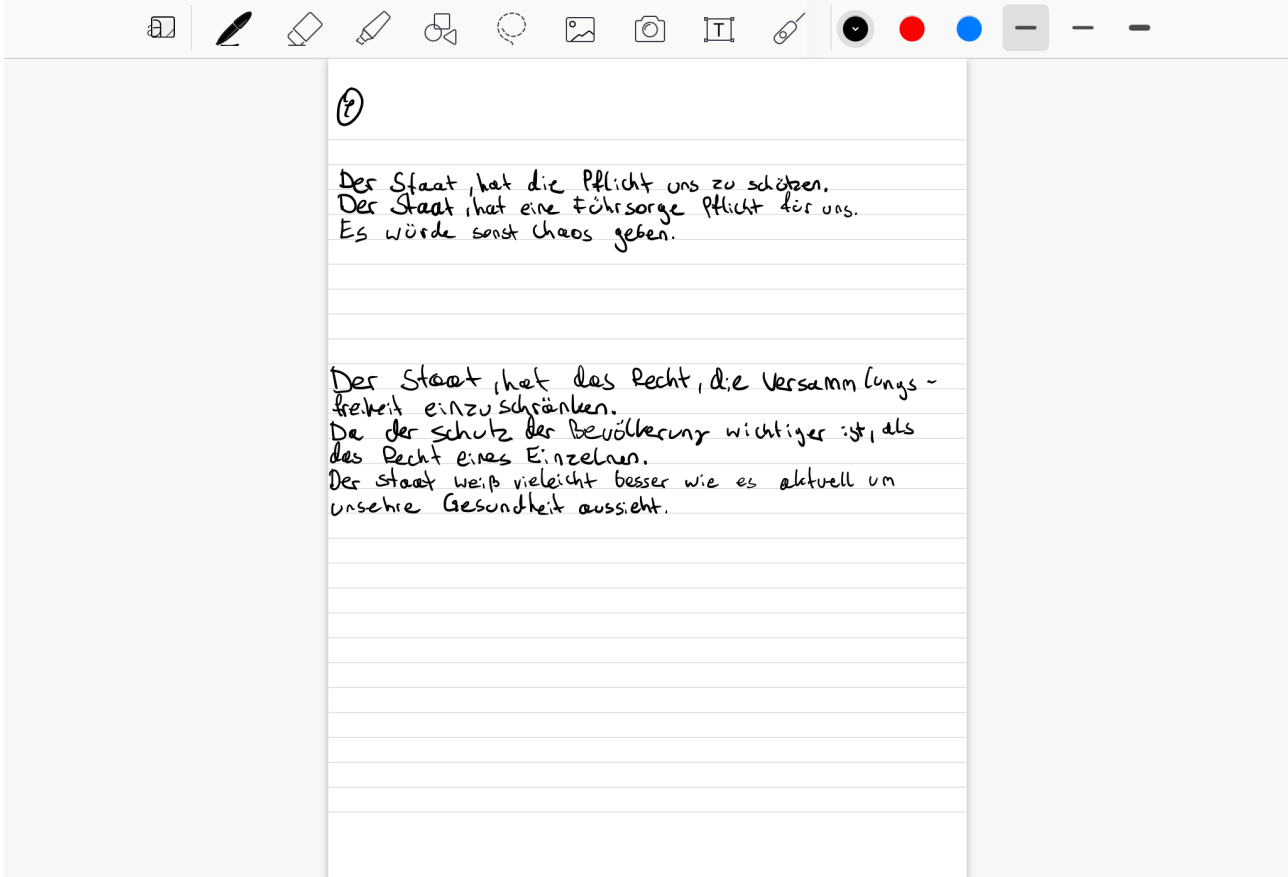 Der Staat, hat die Pflicht uns zu schützen.
Der Staat, hat eine Führsorge Pflicht für uns.
Es würde sonst Chaos geben.
Der Staat, hat das Recht, die Versammlungs-
freiheit einzuschränken.
Da der Schutz der Bevölkerung wichtiger ist, als
das Recht eines Einzelnen.
Der Staat weiß vieleicht besser wie es aktuell um
unsehre Gesundheit aussieht.